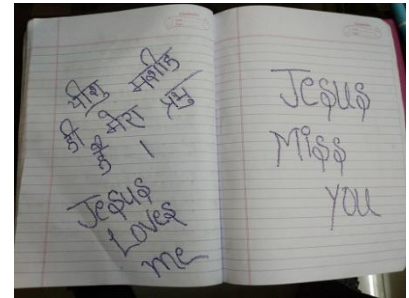 यीशु मसीह
ही मेरा प्रभु
है ।
Jesus
Loves
me
Jesus
Miss
you